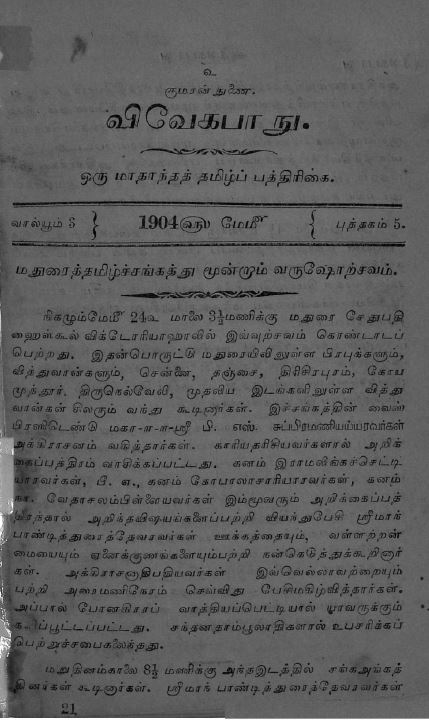 உ
குமரன் துணை.
விவேகபாநு.
ஒரு மாதாந்தத் தமிழ்ப் பத்திரிகை.
வால்யூம் 3 } 1904௵ மே௴ { புத்தகம் 5.
மதுரைத்தமிழ்ச்சங்கத்து மூன்றாம் வருஷோற்சவம்.
நிகழும்மே௴ 24௳ மாலை 3½மணிக்கு மதுரை சேதுபதி
ஹைஸ்கூல் விக்டோரியாஹாலில் இவ்வுற்சவம் கொண்டாடப்
பெற்றது. இதன்பொருட்டு மதுரையிலுள்ள பிரபுக்களும்,
வித்துவான்களும், சென்னை, தஞ்சை, திரிசிரபுரம், கோய
முத்தூர். திருநெல்வேலி, முதலிய இடங்களிலுள்ள வித்து
வான்கள் சிலரும் வந்து கூடினார்கள். இச்சங்கத்தின் வைஸ்
பிரஸிடெண்டு மகா-ள-ள-ஸ்ரீ பி. எஸ். சுப்பிரமணியய்யரவர்கள்
அக்கிராசனம் வகித்தார்கள். காரியதரிசியவர்களால் அறிக்
கைப்பத்திரம் வாசிக்கப்பட்டது. கனம் இராமலிங்கச்செட்டி
யாரவர்கள், பி, ஏ., கனம் கோபாலாசாரியாரவர்கள், கனம்
வேதாசலம்பிள்ளையவர்கள் இம்மூவரும் அறிக்கைப்பத்
திரத்தால் அறிந்தவிஷயங்களைப்பற்றி வியந்துபேசி ஸ்ரீமாந்
பாண்டித்துரைத்தேவரவர்கள் ஊக்கத்தையும், வள்ளற்றன்
மையையும் ஏனைக்குணங்களையும்பற்றி நன்கெடுத்துக்கூறினார்
கள். அக்கிராசனாதிபதியவர்கள் இவ்வெல்லாவற்றையும்
பற்றி அரைமணிநேரம் செவ்விது பேசிமகிழ்வித்தார்கள்.
அப்பால் போனகிராப் வாத்தியப்பெட்டியால் யாவருக்கும்
களிப்பூட்டப்பட்டது. சந்தனதாம்பூலாதிகளால் உபசரிக்கப்
பெற்றுச்சபைகலைந்தது.
மறுதினம்காலை 8½ மணிக்கு அந்தஇடத்தில் சங்கஅங்கத்
தினர்கள் கூடினார்கள். ஸ்ரீமாந் பாண்டித்துரைத்தேவரவர்கள்
21